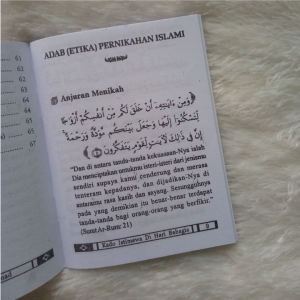 61
62
65
66
67
ADAB (ETIKA) PERNIKAHAN ISLAMI
Anjuran Menikah
وَمِنْ ءَايَٰتِهِۦٓ أَنْ خَلَقَ لَكُم مِّنْ أَنفُسِكُمْ أَزْوَٰجًا
لِّتَسْكُنُوٓا۟ إِلَيْهَا وَجَعَلَ بَيْنَكُم مَّوَدَّةً وَرَحْمَةً ۚ
إِنَّ فِى ذَٰلِكَ لَءَايَٰتٍ لِّقَوْمٍ يَتَفَكَّرُونَ
"Dan di antara tanda-tanda kekuasaan-Nya ialah
Dia menciptakan untukmu isteri-isteri dari jenismu
sendiri supaya kamu cenderung dan merasa
tenteram kepadanya, dan dijadikan-Nya di
antaramu rasa kasih dan sayang. Sesungguhnya
pada yang demikian itu benar-benar terdapat
tanda-tanda bagi orang-orang yang berfikir."
(Surat Ar-Rum: 21)
Kado Istimewa Di Hari Bahagia
9